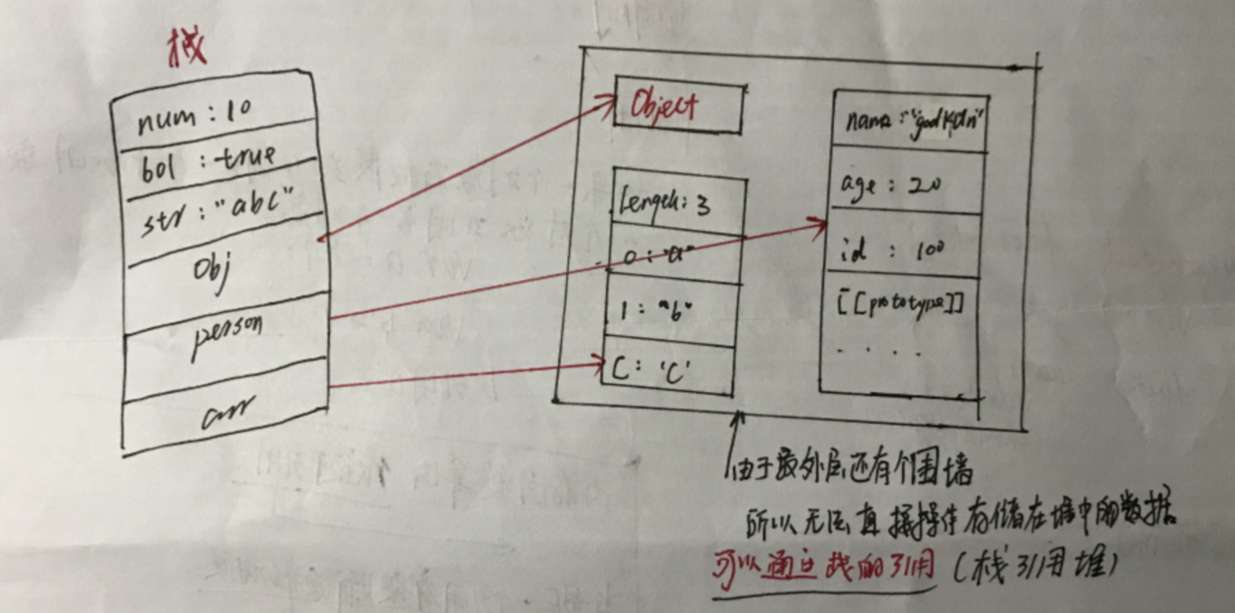 栈
num : 10
bol : true
str : "abc"
Obj
person
arr
Object
length : 3
0 : "a"
1 : "b"
C : 'C'
name : "
age : 20
id : 100
[[prototype]]
. . . .
由于最外层还有个围墙
所以无法直接操作存储在堆中的数据
可以通过栈的引用 (栈引用堆)